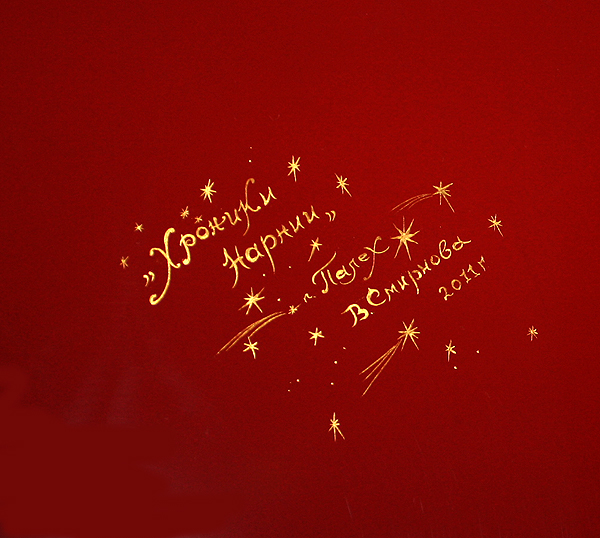 „Хроники
Нарнии„
п. Палех
В. Смирнова
2011г